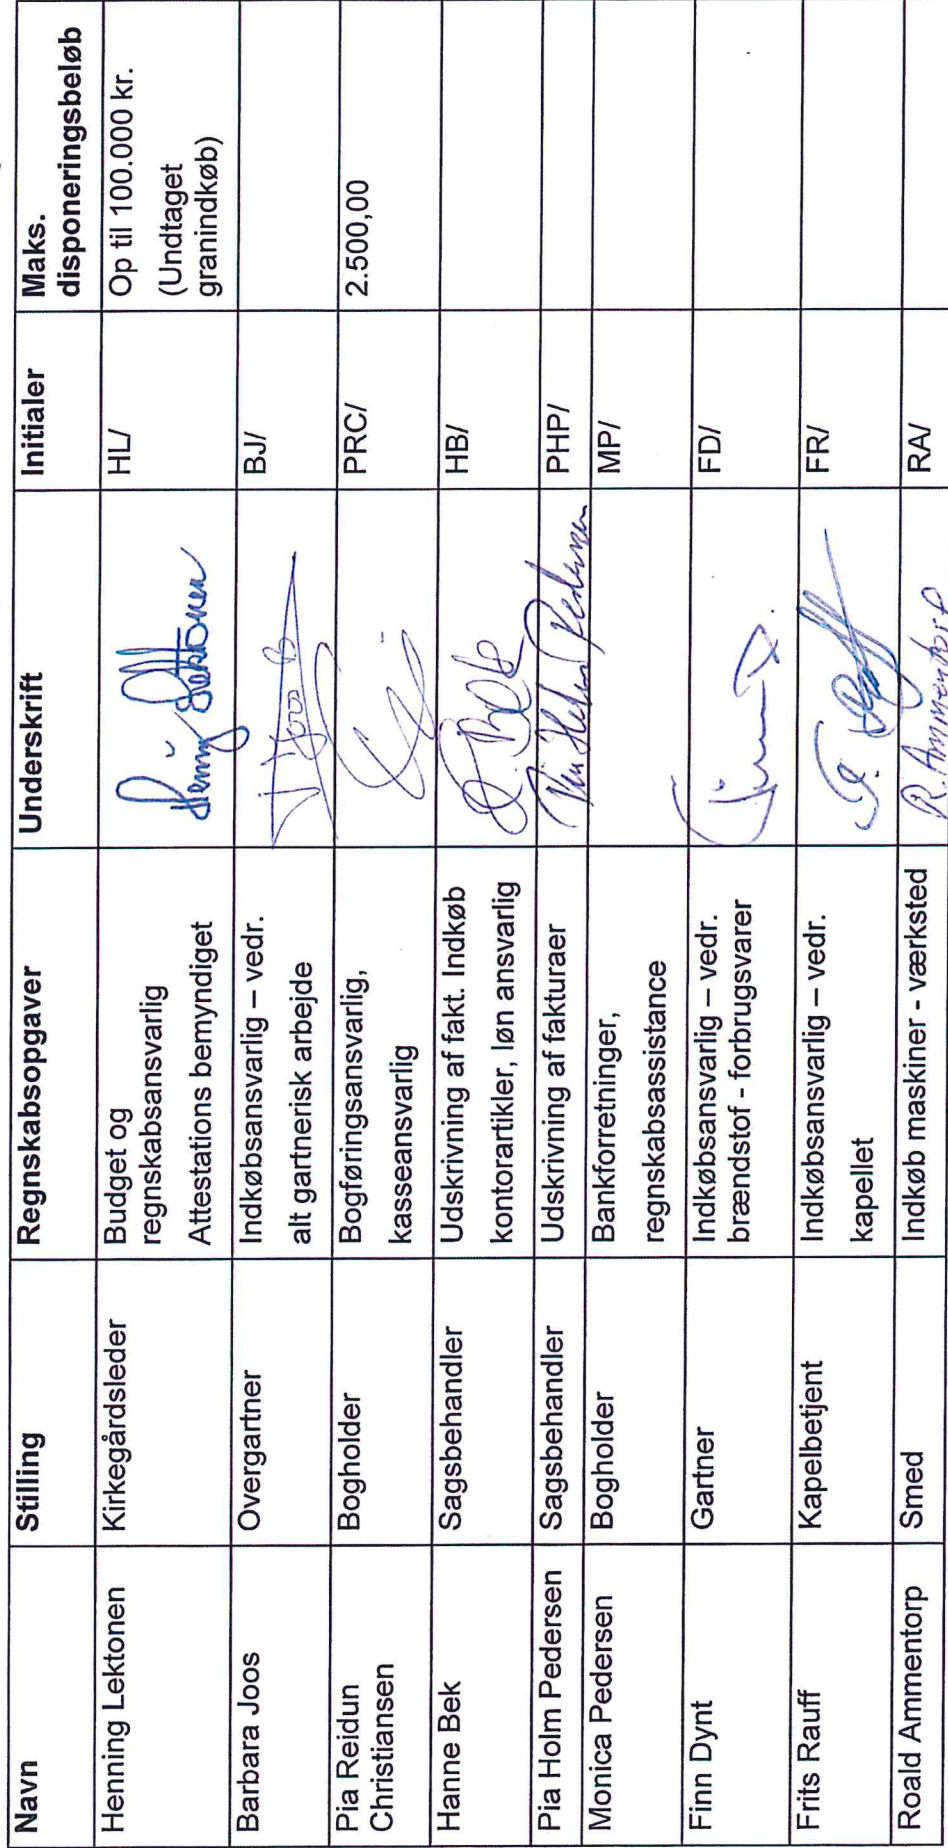 Navn Stilling Regnskabsopgaver Underskrift Initialer Maks.
disponeringsbeløb
Henning Lektonen Kirkegårdsleder Budget og HL/ Op til 100.000 kr.
regnskabsansvarlig Henning Lektonen (Undtaget
Attestations bemyndiget granindkøb)
Barbara Joos Overgartner Indkøbsansvarlig – vedr. Joos BJ/
alt gartnerisk arbejde
Pia Reidun Bogholder Bogføringsansvarlig, PRC/ 2.500,00
Christiansen kasseansvarlig
Hanne Bek Sagsbehandler Udskrivning af fakt. Indkøb Bek HB/
kontorartikler, løn ansvarlig
Pia Holm Pedersen Sagsbehandler Udskrivning af fakturaer Pia Holm Pedersen PHP/
Monica Pedersen Bogholder Bankforretninger, MP/
regnskabsassistance
Finn Dynt Gartner Indkøbsansvarlig – vedr. Finn D. FD/
brændstof - forbrugsvarer
Frits Rauff Kapelbetjent Indkøbsansvarlig – vedr. FR/
kapellet
Roald Ammentorp Smed Indkøb maskiner - værksted R. Ammentorp RA/